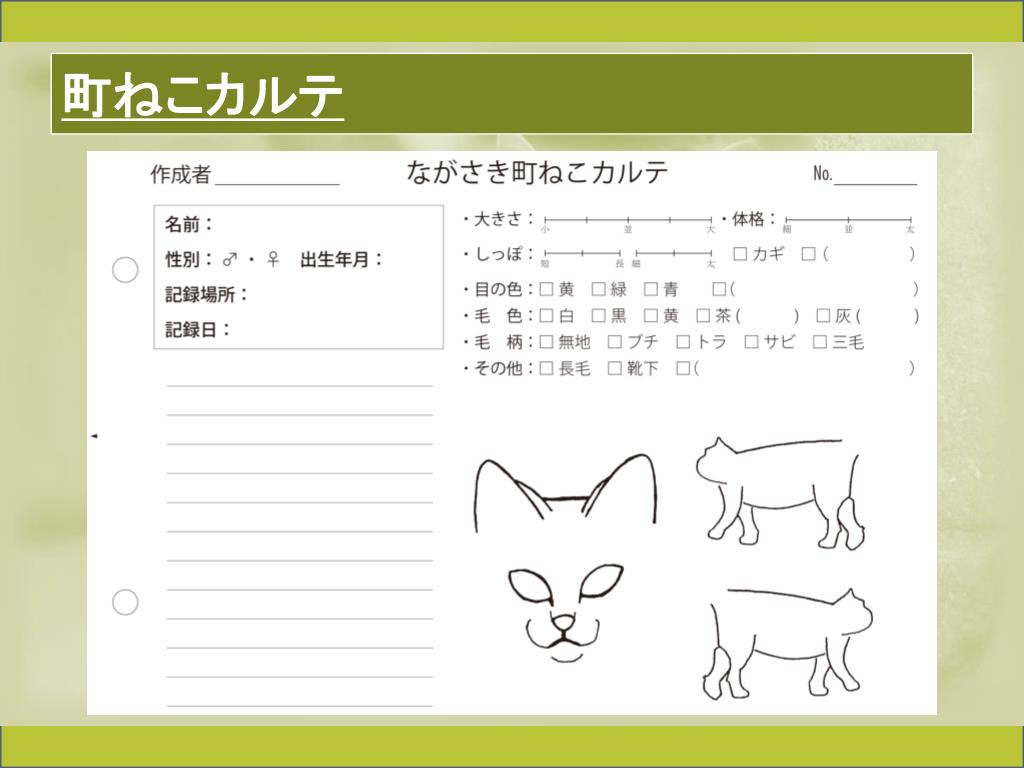 町ねこカルテ
作成者 ながさき町ねこカルテ No.
名前：
性別：♂・♀ 出生年月：
記録場所：
記録日：
・大きさ： 小 並 大 ・体格： 細 並 太
・しっぽ： 短 長 細 太 □カギ □( )
・目の色：□黄 □緑 □青 □( )
・毛 色：□白 □黒 □黄 □茶( ) □灰( )
・毛 柄：□無地 □ブチ □トラ □サビ □三毛
・その他：□長毛 □靴下 □( )